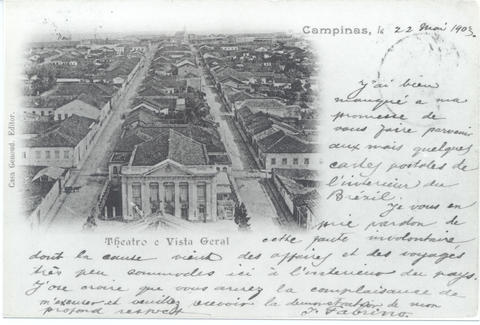 Campinas, le 22 Mai 1903
J'ai bien
manqué a ma
promesse de
vous faire parvenir
aux mois quelques
cartes postales de
l'interieur du
Brézil.
Je vous en
prie pardon de
cette faute involontaire
dont la cause vient des affaires et des voyages
très peu commodes ici à l'interieur du pays.
J'ose croire que vous aurez la complaisance de
m'excuser et veuillez recevoir la demonstration de mon
profond respect
Casa Genoud. Editor.
Theatro e Vista Geral